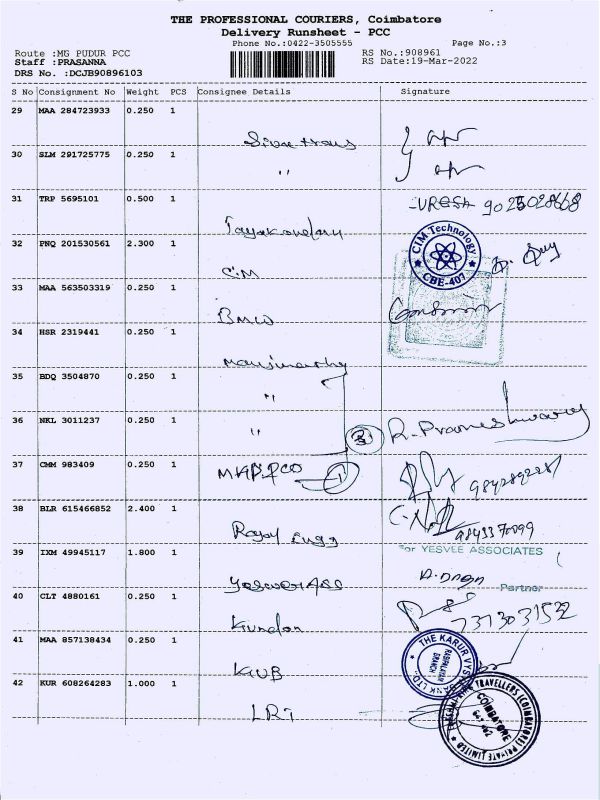 THE PROFESSIONAL COURIERS, Coimbatore
Delivery Runsheet - PCC
Phone No.:0422-3505555 Page No.:3
Route :MG PUDUR PCC RS No.:908961
Staff :PRASANNA RS Date:19-Mar-2022
DRS No. :DCJB90896103
S No Consignment No Weight PCS Consignee Details Signature
29 MAA 284723933 0.250 1
30 SLM 291725775 0.250 1
"
31 TRP 5695101 0.500 1
32 PNQ 201530561 2.300 1
CIM Technology
CBE-407
CIM
33 MAA 563503319 0.250 1
BMW
34 HSR 2319441 0.250 1
35 BDQ 3504870 0.250 1
"
36 NKL 3011237 0.250 1
" 3 R. Prameshwary
37 CMM 983409 0.250 1
1
38 BLR 615466852 2.400 1
9843370099
39 IXM 49945117 1.800 1
For YESVEE ASSOCIATES
Partner
40 CLT 4880161 0.250 1
Kundan 7373031532
41 MAA 857138434 0.250 1
THE KARUR VYSYA BANK LTD.
BRANCH
KVB
42 KUR 608264283 1.000 1
TRAVELLERS (COIMBATORE) PRIVATE LIMITED
COIMBATORE
LRT